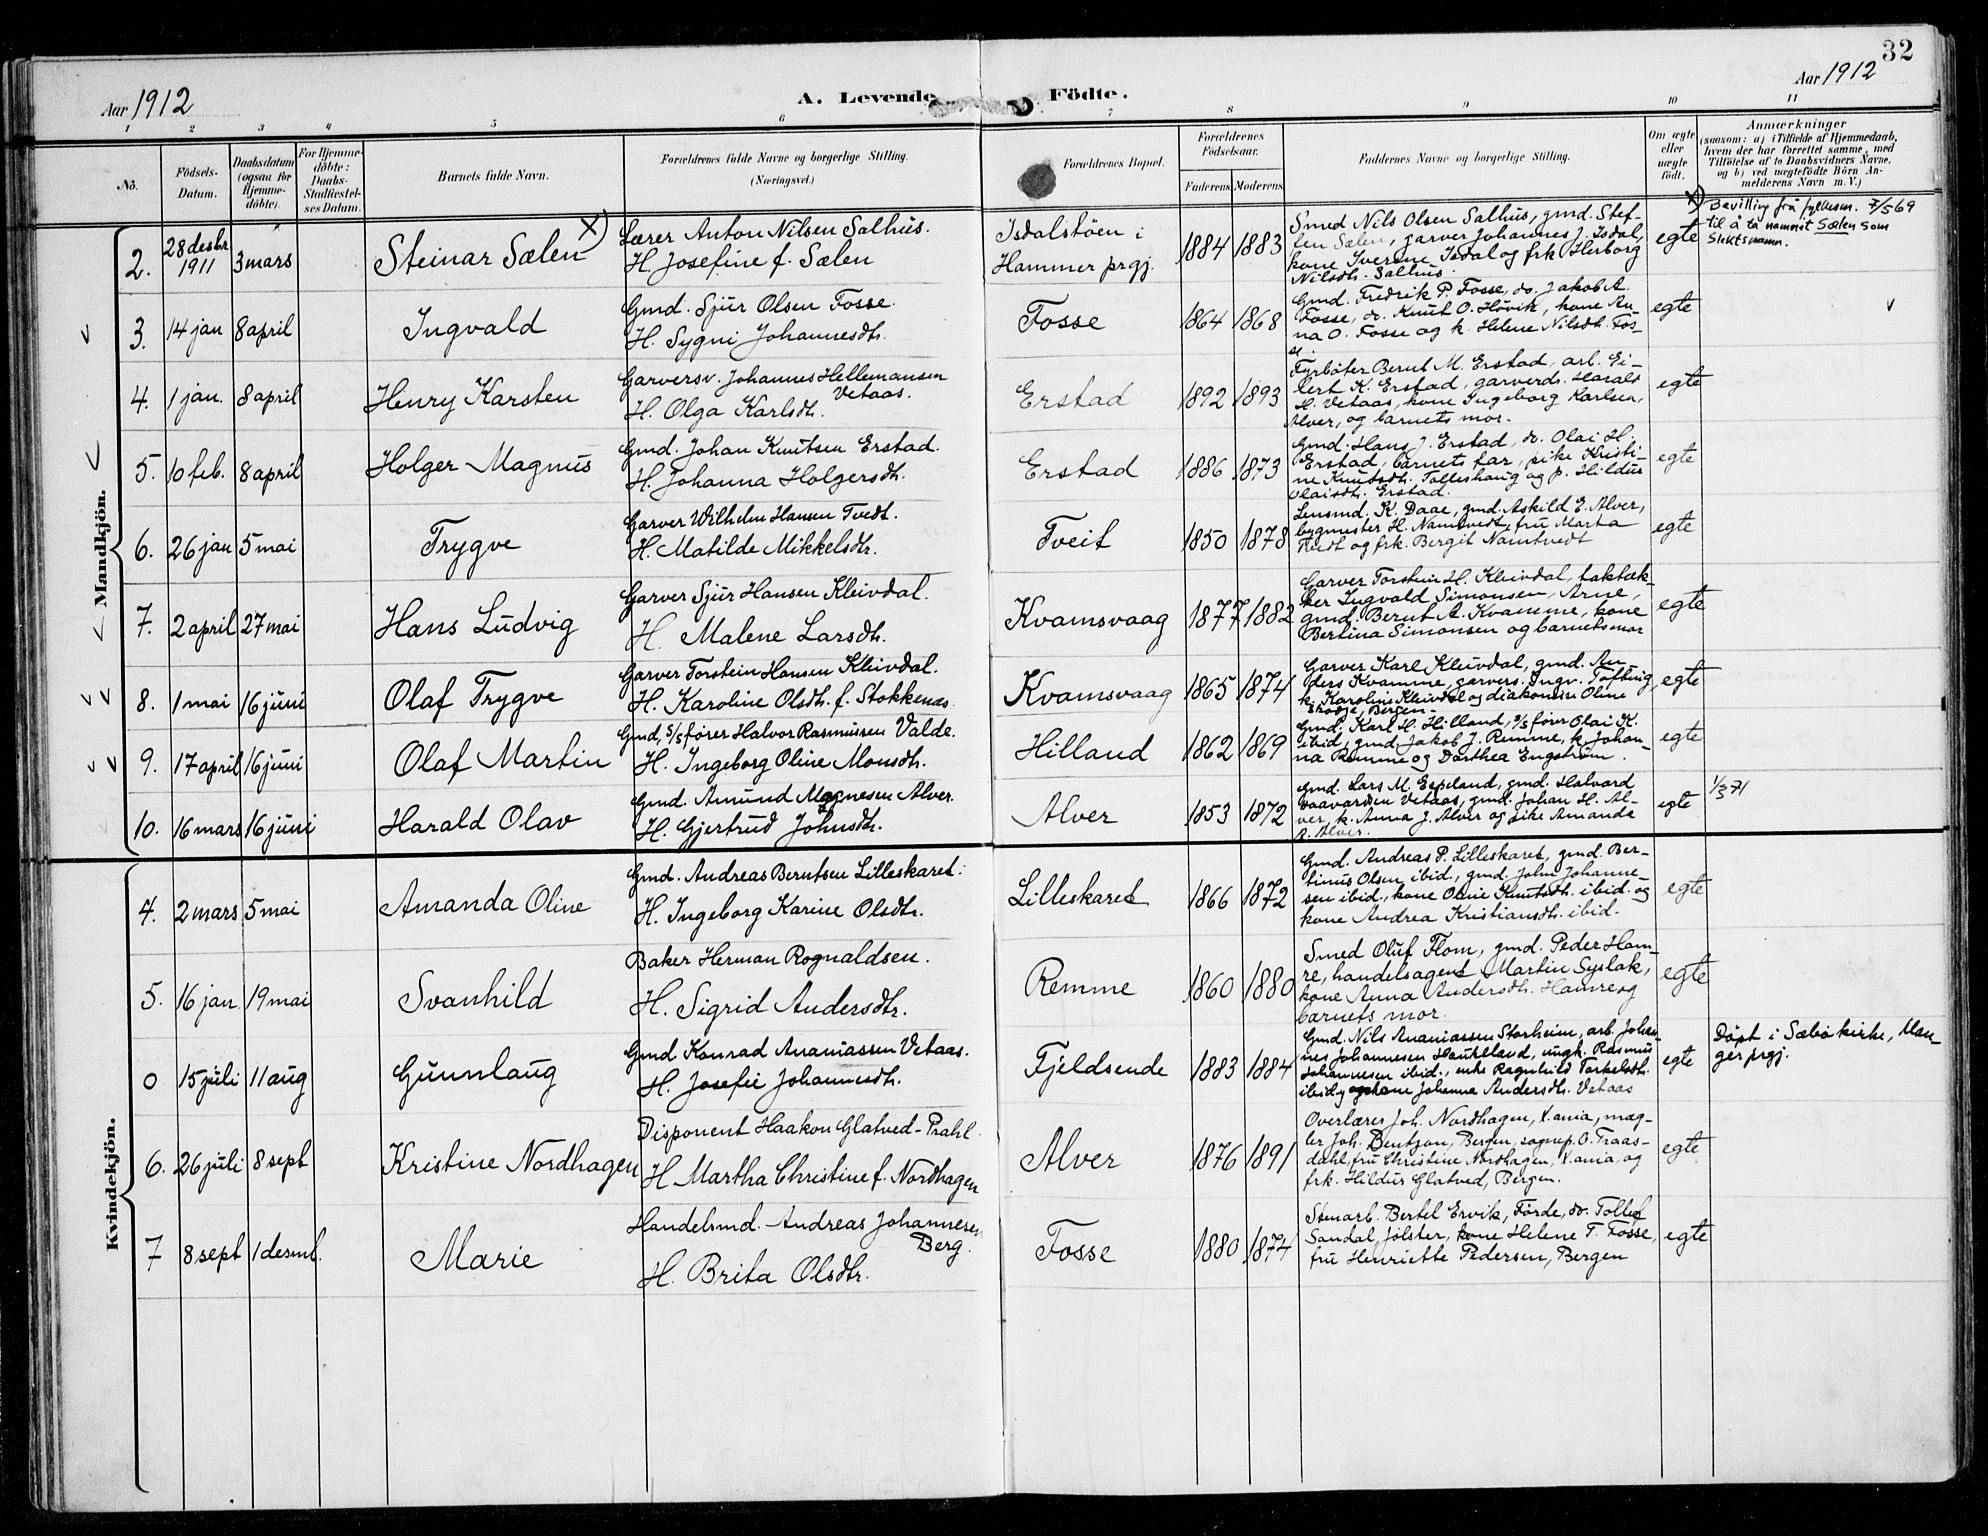 32
Aar 1912
A. Levende
Födte.
Aar 1912
1 2 3 4 5 6 7 8 9 10 11
No.
Födsels-
Datum.
Daabsdatum
(ogsaa for
Hjemme-
döbte).
For Hjemme-
döbte:
Daabs-
Stadfæstel-
ses Datum.
Barnets fulde Navn.
Forældrenes fulde Navne og borgerlige Stilling.
(Næringsvei.)
Forældrenes Bopæl.
Forældrenes
Födselsaar.
Faderens Moderens
Faddernes Navne og borgerlige Stilling.
Om ægte
eller
uægte
födt.
Anmærkninger
(saasom: a) i Tilfælde af Hjemmedaab,
hvem der har forrettet samme, med
Tilföielse af to Daabsvidners Navne,
og b) ved uægtefödte Börn An-
melderens Navn m. V.)
Mandkjön.
2. 28 desbr 1911 3 mars
Steinar Sælen x)
Lærer Anton Nilsen Salhus.
H. Josefine f. Sælen
Isdalstöen i
Hammer prgj.
1884 1883
Smed Nils Olsen Salhus, gmd. Stef-
fen Sælen, garver Johannes J. Isdal,
kone Iverine Isdal og frk Herborg
Nilsdh. Salhus.
egte
x) Bevilling frå fylkesm. 7/5 69
til å ta namnet Sælen som
Slektsnamn.
3. 14 jan 8 april
Ingvald
Gmd. Sjur Olsen Fosse.
H. Sygni Johannesdh.
Fosse
1864 1868
Gmd. Fredrik P. Fosse, do. Jakob A.
Fosse, do. Knut O. Hövik, kone An-
na O. Fosse og k. Helene Nilsdh. Fos-
se.
egte
4. 1 jan. 8 april
Henry Karsten
Garversv. Johannes Hellemansen
Vetaas.
H. Olga Karlsdt.
Erstad
1892 1893
Fyrböter Bernt M. Erstad, arb. Ei-
lert K. Erstad, garverds. Harald
H. Vetaas, kone Ingeborg Karlsen,
Alver, og barnets mor.
egte
5. 10 feb. 8 april
Holger Magnus
Gmd. Johan Knutsen Erstad.
H. Johanna Holgersdh.
Erstad
1886 1873
Gmd. Hans J. Erstad, do. Olai H.
Erstad, barnets far, pike Kristi-
ne Knutsdh. Tolleshaug og p. Hildur
Olaisdh. Erstad.
egte
6. 26 jan 5 mai
Trygve
Garver Wilhelm Hansen Tvedt.
H. Matilde Mikkelsdtr.
Tveit
1850 1878
Lensmd. K. Daae, gmd. Askild E. Alver,
bygmester H. Namtvedt, fru Marta
Tvedt og frk. Bergit Namtvedt
egte
7. 2 april 27 mai
Hans Ludvig
Garver Sjur Hansen Kleivdal.
H. Malene Larsdh.
Kvamsvaag
1877 1882
Garver Torstein H. Kleivdal, taktæk-
ker Ingvald Simonsen, Arne,
gmd. Bernt A. Kvamme, kone
Bertina Simonsen og barnets mor
egte
8. 1 mai 16 juni
Olaf Trygve
Garver Torstein Hansen Kleivdal.
H. Karoline Olsdh. f. Stokkenes
Kvamsvaag
1865 1874
Garver Karl Kleivdal, gmd. An-
ders Kvamme, garvers. Ingv. Tofting,
k. Karoline Kleivdal og diakonisse Oline
Bergen.
egte
9. 17 april 16 juni
Olaf Martin
Gmd, s/s fører Halvor Rasmussen Valde.
H. Ingeborg Oline Monsdh.
Hilland
1862 1869
Gmd. Karl H. Hilland, s/s förer Olai K.
ibid, gmd. Jakob J. Remme, k. Johan-
na Remme og Dorthea Engström.
egte
10. 16 mars 16 juni
Harald Olav
Gmd. Amund Magnesen Alver.
H. Gjertrud Johnsdh.
Alver
1853 1872
Gmd. Lars M. Espeland, gmd. Halvard
Vetaas, gmd. Johan H. Al-
ver, k. Anna J. Alver og pike Amanda
A. Alver.
egte
1/3 71
Kvindekjön.
4. 2 mars 5 mai
Amanda Oline
Gmd. Andreas Berntsen Lilleskaret.
H. Ingeborg Karine Olsdtr.
Lilleskaret
1866 1872
Gmd. Andreas P. Lilleskaret, gmd. Ber-
tinus Olsen ibid., gmd. John Johanne-
sen ibid., kone Oline Knutsdh. ibid. og
kone Andrea Kristiansdh. ibid.
egte
5. 16 jan 19 mai
Svanhild
Baker Herman Rognaldsen.
H. Sigrid Andersdtr.
Remme
1860 1880
Smed Oluf Flom, gmd. Peder Ham-
re, handelsagent Martin Syslak,
kone Anna Andersdh. Hamre og
barnets mor.
egte
0 15 juli 11 aug
Gunnlaug
Gmd Konrad Ananiassen Vetaas.
H. Josefie Johannesdh.
Fjeldsende
1883 1884
Gmd. Nils Ananiassen Storheim, arb. Johan-
nes Johannesen Haukeland, ungk. Rasmus
Johannesen ibid., enke Ragnhild Torkelsdh.
ibid og kone Johanna Andersdh. Vetaas
egte
Döpt i Sæbö kirke, Man-
ger prgj.
6. 26 juli 8 sept
Kristine Nordhagen
Disponent Haakon Glatved-Prahl.
H Martha Christine f. Nordhagen
Alver
1876 1891
Overlærer Joh. Nordhagen, X.ania, mæg-
ler Joh. Bentzon, Bergen, sognep. O. Traas-
dahl, fru Christine Nordhagen, X.ania, og
frk. Hildur Glatved, Bergen.
egte
7 8 sept 1 desmb.
Marie
Handelsmd. Andreas Johannesen
Berg.
H. Brita Olsdtr.
Fosse
1880 1874
Stenarb. Bertel Ervik, Förde, do. Tollef
Sandal, Jölster, kone Helene T. Fosse,
fru Henriette Pedersen, Bergen
egte